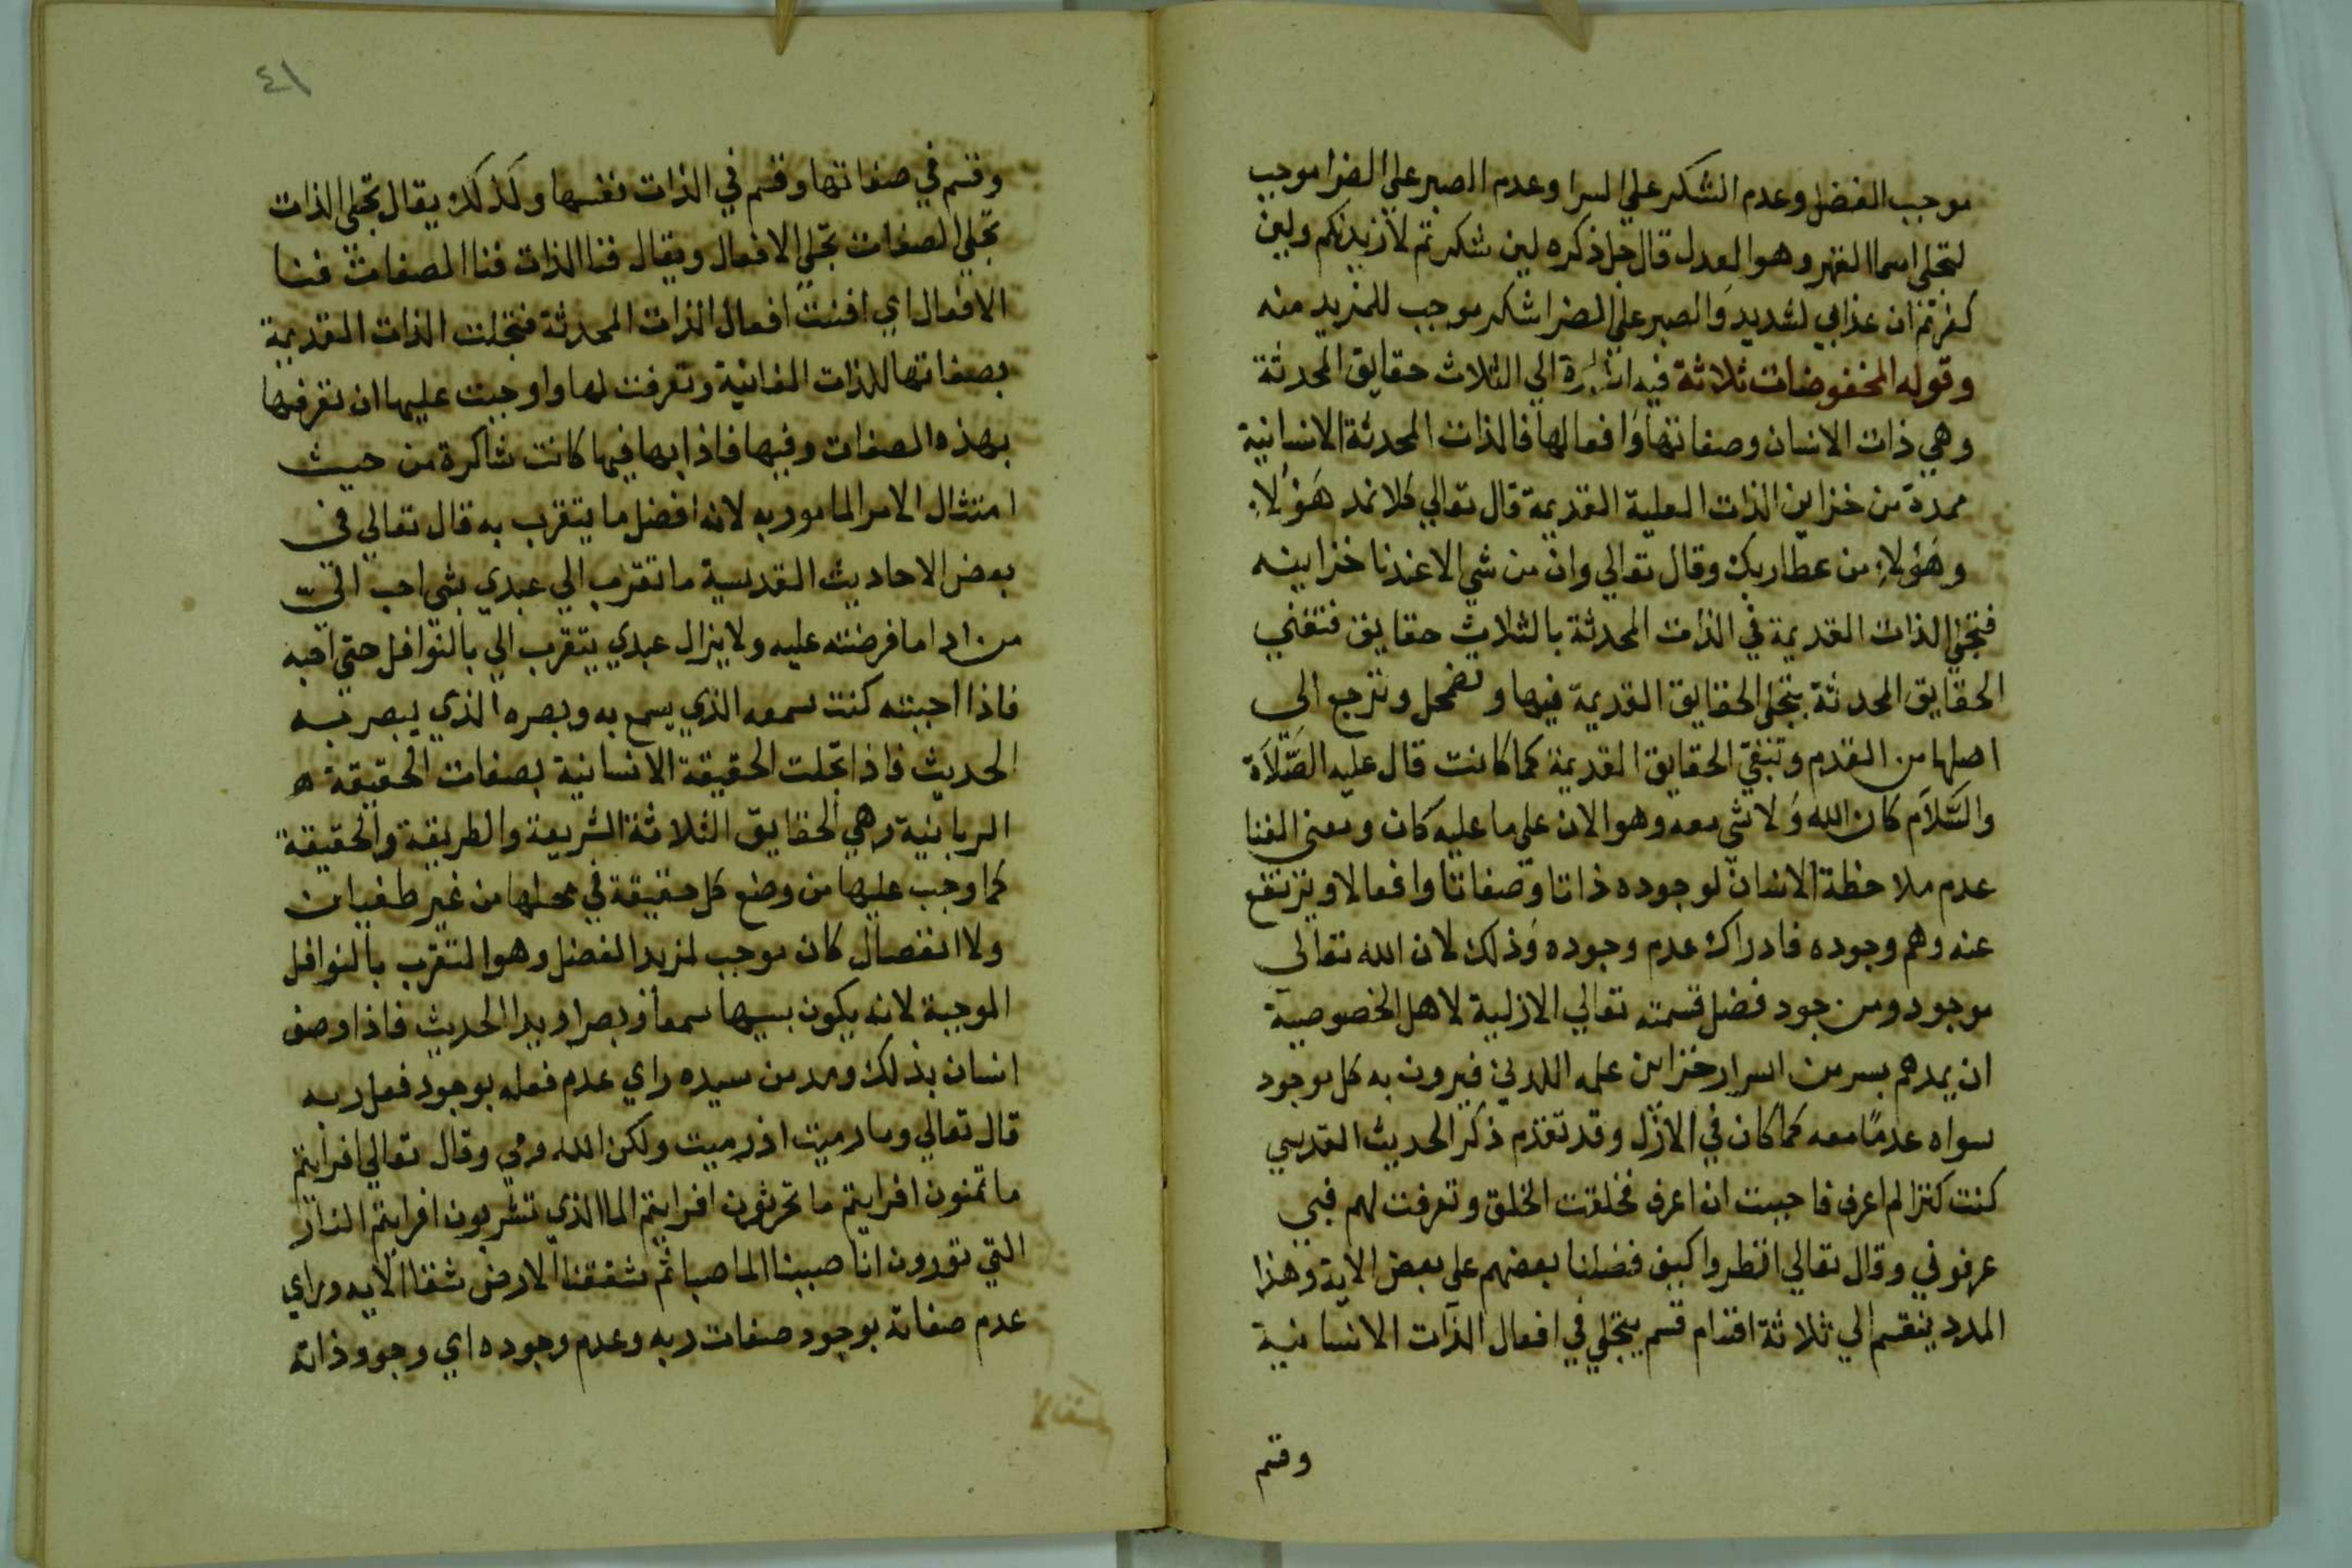 موجب الفضل وعدم الشكر علي السرا وعدم الصبر علي الضرا موجب
لتجلي اسما القهر وهو العدل قال جل ذكره لين شكرتم لازيدنكم ولين
كفرتم ان عذابي لشديد والصبر علي الضرا شكر موجب للمزيد منه
وقوله المخفوضات ثلاثة فيه اشارة الي الثلاث حقايق المحدثة
وهي ذات الانسان وصفاتها وافعالها فالذات المحدثة الانسانية
ممدة من خزاين الذات العلية القديمة قال تعالي كلا نمد هَؤُلاءِ
وهَؤُلاءِ من عطا ربك وقال تعالي وان من شي الا عندنا خزاينه
فتجلي الذات القديمة في الذات المحدثة بالثلاث حقايق فتفني
الحقايق المحدثة بتجلي الحقايق القديمة فيها وتضمحل وترجع الي
اصلها من القدم وتبقي الحقايق القديمة كما كانت قال عليه الصَّلَاة
والسَّلَام كان الله وَلا شي معه وهو الان علي ما عليه كان ومعني الفنا
عدم ملاحظة الانسان لوجوده ذاتا وصفاتا وافعالا ويرتفع
عنه وهم وجوده فادراك عدم وجوده وَذلك لان الله تعالي
موجود ومن جود فضل قسمته تعالي الازلية لاهل الخصوصية
ان يمدهم بسر من اسرار خزاين علمه اللدني فيرون به كل موجود
سواه عدمًا معه كما كان في الازل وقد تقدم ذكر الحديث القدسي
كنت كنزا لم اعرف فاحببت ان اعرف فخلقت الخلق وتعرفت لهم فبي
عرفوني وقال تعالي انظروا كيف فضلنا بعضهم علي بعض الاية وهذا
المدد ينقسم الي ثلاثة اقسام قسم يتجلي في افعال الذات الانسانية
وقسم
٤١
وقسم في صفاتها وقسم في الذات نفسها وكذلك يقال تجلي الذات
تجلي الصفات تجلي الافعال ويقال فنا الذات فنا الصفات فنا
الافعال اي افنت افعال الذات المحدثة فتجلت الذات القديمة
بصفاتها للذات الفانية وتعرفت لها واوجبت عليها ان تعرفها
بهذه الصفات وفيها فاذا بها فيها كانت شاكرة من حيث
امتثال الامر المامور به لانه افضل ما يتقرب به قال تعالي في
بعض الاحاديث القدسية ما تقرب الي عبدي بشي احب الي
من ادا ما فرضته عليه ولا يزال عبدي يتقرب الي بالنوافل حتي احبه
فاذا احببته كنت سمعه الذي يسمع به وبصره الذي يبصر به
الحديث فاذا تجلت الحقيقة الانسانية بصفات الحقيقة
الربانية وهي الحقايق الثلاثة الشريعة والطريقة والحقيقة
كما وجب عليها من وضع كل حقيقة في محلها من غير طغيان
ولا انفصال كان موجب لمزيد الفضل وهو التقرب بالنوافل
الموجبة لانه يكون بسببها سمعا وبصرا ويدا الحديث فاذا وصف
انسان بذلك ومد من سيده راي عدم فعله بوجود فعل ربه
قال تعالي وما رميت اذ رميت ولكن الله رمي وقال تعالي افرايتم
ما تمنون افرايتم ما تحرثون افرايتم الما الذي تشربون افرايتم النار
التي تورون انا صببنا الما صبا ثم شققنا الارض شقا الايه وراي
عدم صفاته بوجود صفات ربه وعدم وجوده اي وجود ذاته